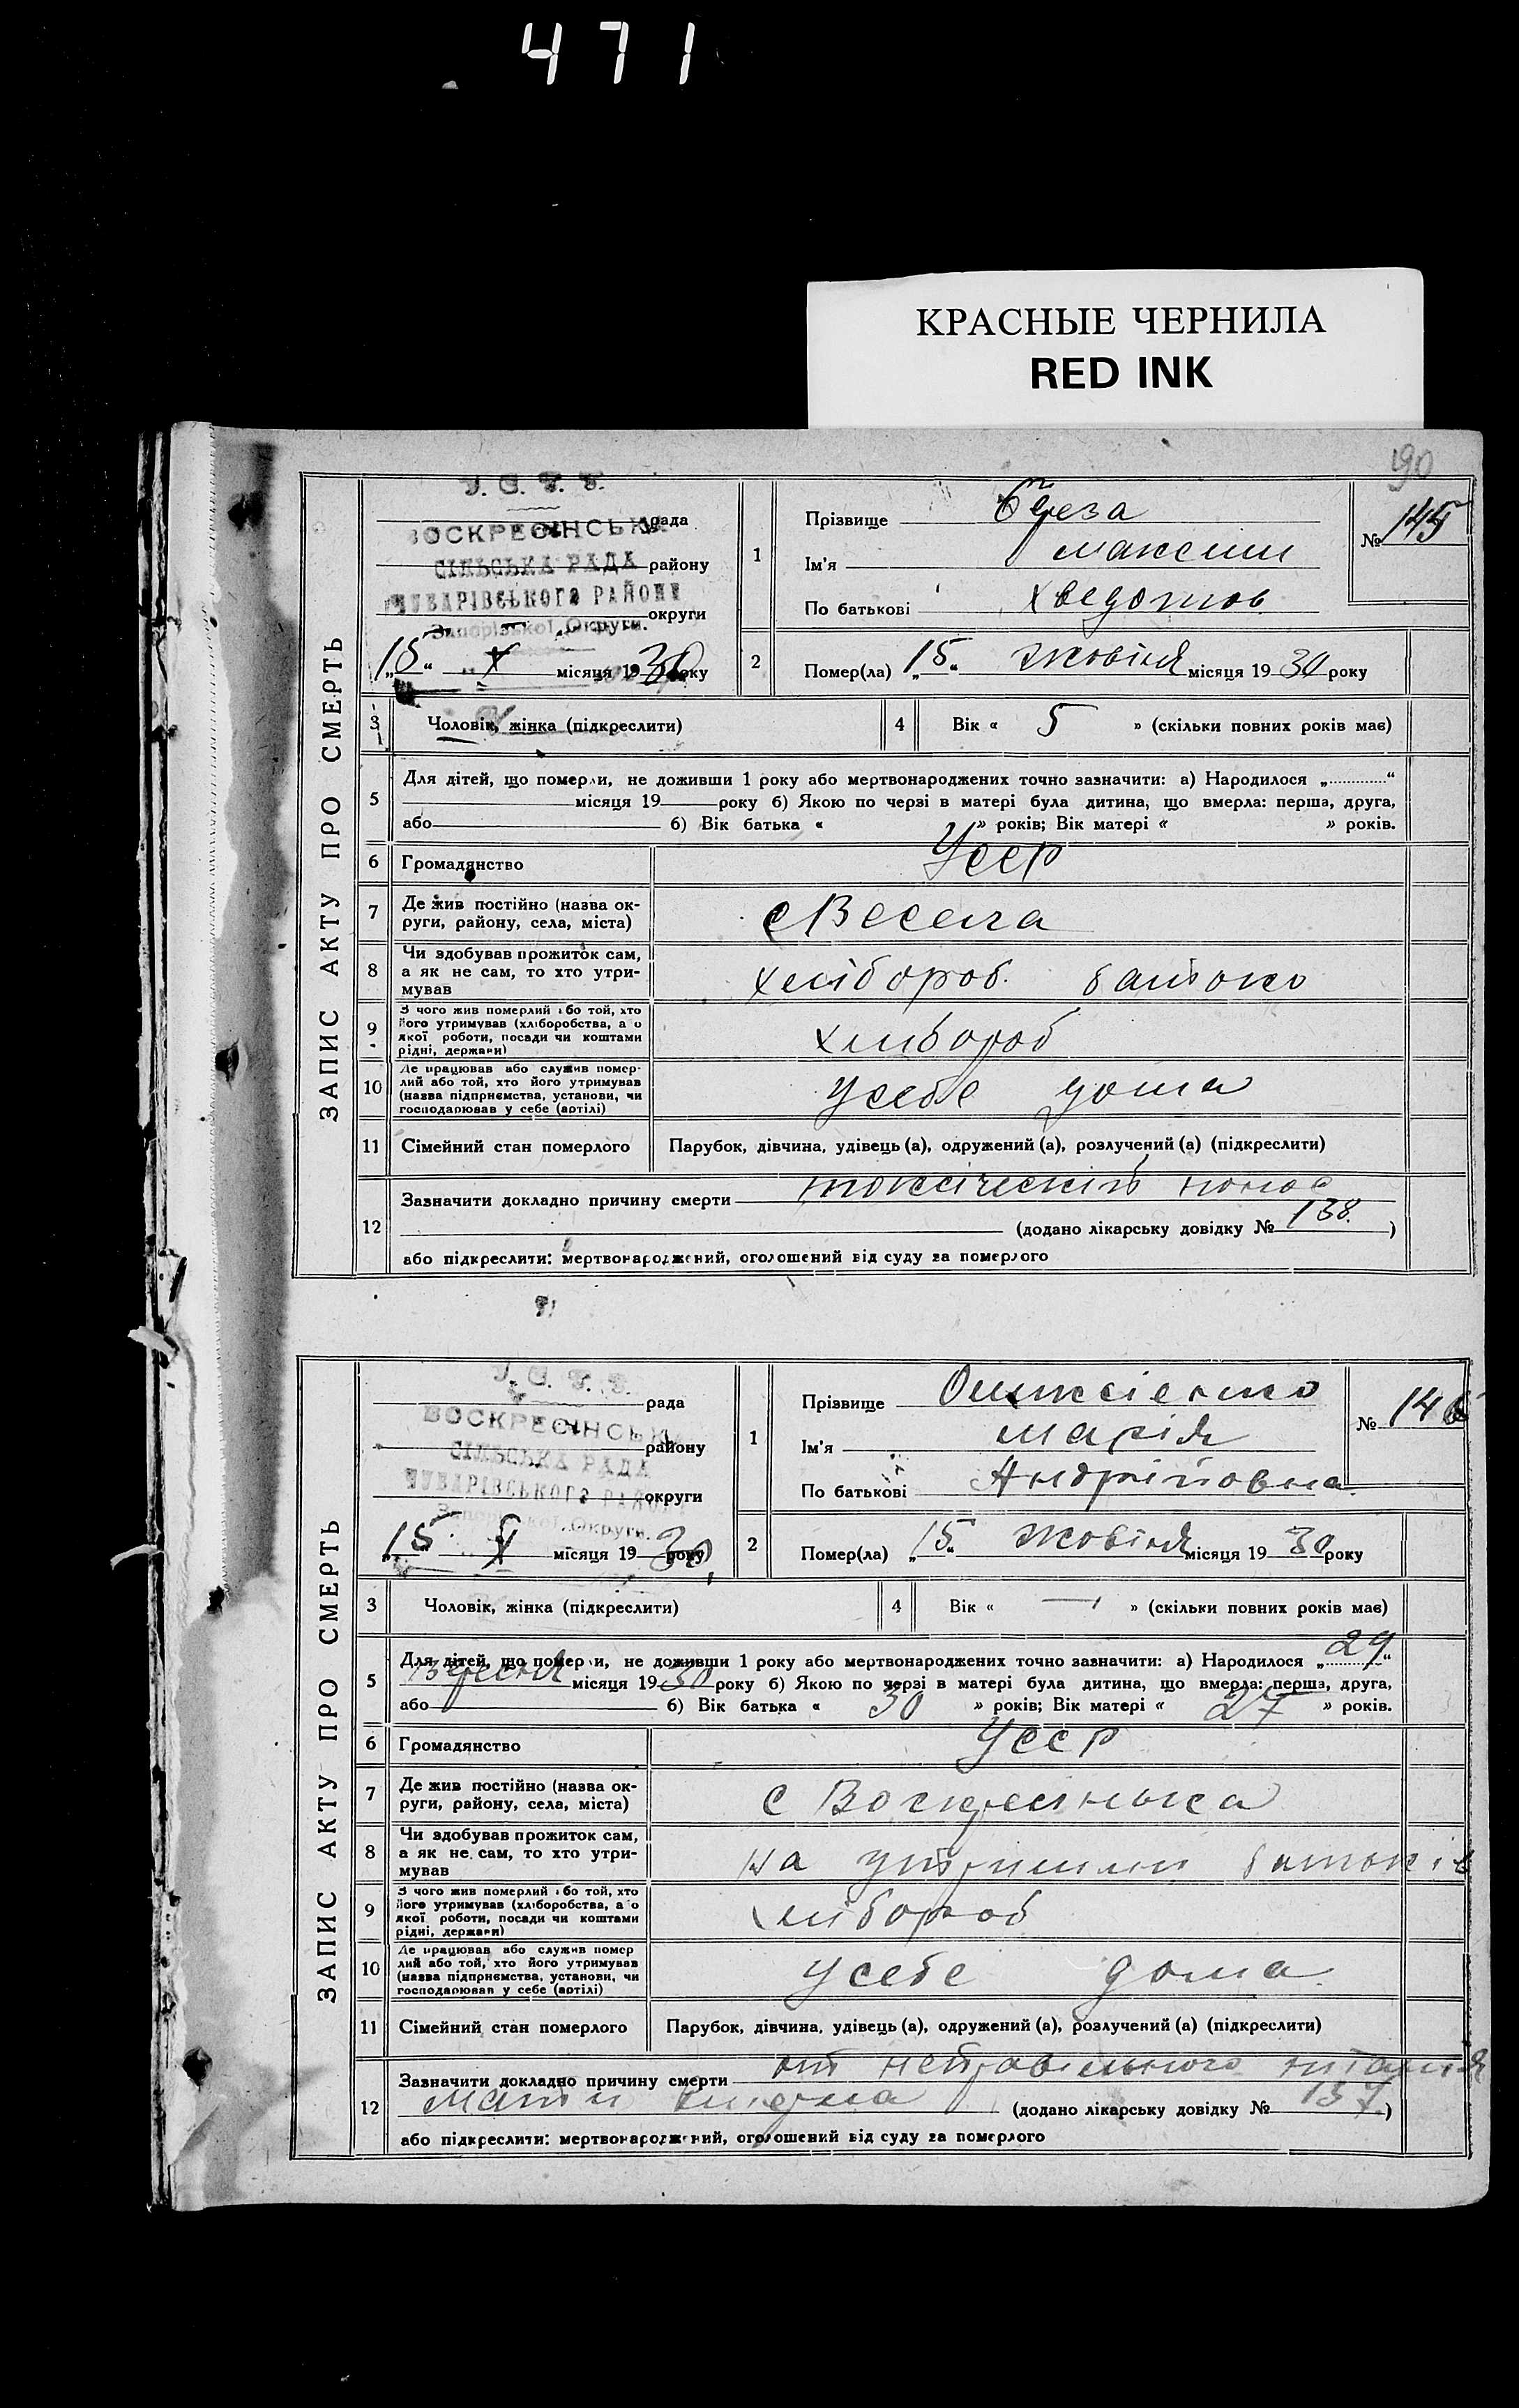 471
КРАСНЫЕ ЧЕРНИЛА
RED INK
90
ЗАПИС АКТУ ПРО СМЕРТЬ
У. С. Р. Р.
ВОСКРЕСІНСЬКА
рада
СІЛЬСЬКА РАДА
району
ЧУБАРІВСЬКОГО РАЙОНУ
округи
Запорізької Округи.
„15“ X місяця 1930 року
1
Прізвище Береза
Ім'я Максим
По батькові Хведотов
№ 145
2
Помер(ла) „15“ Жовтня місяця 1930 року
3 Чоловік, жінка (підкреслити)
4 Вік « 5 » (скільки повних років має)
5 Для дітей, що померли, не доживши 1 року або мертвонароджених точно зазначити: а) Народилося „............“
місяця 19 року б) Якою по черзі в матері була дитина, що вмерла: перша, друга,
або б) Вік батька « » років; Вік матері « » років.
6 Громадянство УССР
7 Де жив постійно (назва ок-
руги, району, села, міста)
с Весела
8 Чи здобував прожиток сам,
а як не сам, то хто утри-
мував
хлібороб. батько
9 З чого жив померлий або той, хто
його утримував (хліборобства, а о
якої роботи, посади чи коштами
рідні, держави)
хлібороб
10 Де працював або служив помер-
лий або той, хто його утримував
(назва підприємства, установи, чи
господарював у себе (артілі)
усебе дома
11 Сімейний стан померлого Парубок, дівчина, удівець (а), одружений (а), розлучений (а) (підкреслити)
12 Зазначити докладно причину смерти токсіческій понос
(додано лікарську довідку № 138.)
або підкреслити: мертвонароджений, оголошений від суду за померлого
ЗАПИС АКТУ ПРО СМЕРТЬ
У. С. Р. Р.
рада
ВОСКРЕСІНСЬКА
району
СІЛЬСЬКА РАДА
ЧУБАРІВСЬКОГО РАЙОНУ
округи
Запорізької Округи.
„15“ X місяця 1930 року
1
Прізвище
Ім'я Марія
По батькові Андрійовна
№ 146
2
Помер(ла) „15“ Жовтня місяця 1930 року
3 Чоловік, жінка (підкреслити)
4 Вік « — » (скільки повних років має)
5 Для дітей, що померли, не доживши 1 року або мертвонароджених точно зазначити: а) Народилося „29“
вересня місяця 1930 року б) Якою по черзі в матері була дитина, що вмерла: перша, друга,
або б) Вік батька « 30 » років; Вік матері « 27 » років.
6 Громадянство УССР
7 Де жив постійно (назва ок-
руги, району, села, міста)
с Воскресінька
8 Чи здобував прожиток сам,
а як не сам, то хто утри-
мував
на утримані батьків
9 З чого жив померлий або той, хто
його утримував (хліборобства, а о
якої роботи, посади чи коштами
рідні, держави)
хлібороб
10 Де працював або служив помер
лий або той, хто його утримував
(назва підприємства, установи, чи
господарював у себе (артілі)
усебе дома
11 Сімейний стан померлого Парубок, дівчина, удівець (а), одружений (а), розлучений (а) (підкреслити)
12 Зазначити докладно причину смерти от неправільного пітанія
мати (додано лікарську довідку № 137)
або підкреслити: мертвонароджений, оголошений від суду за померлого